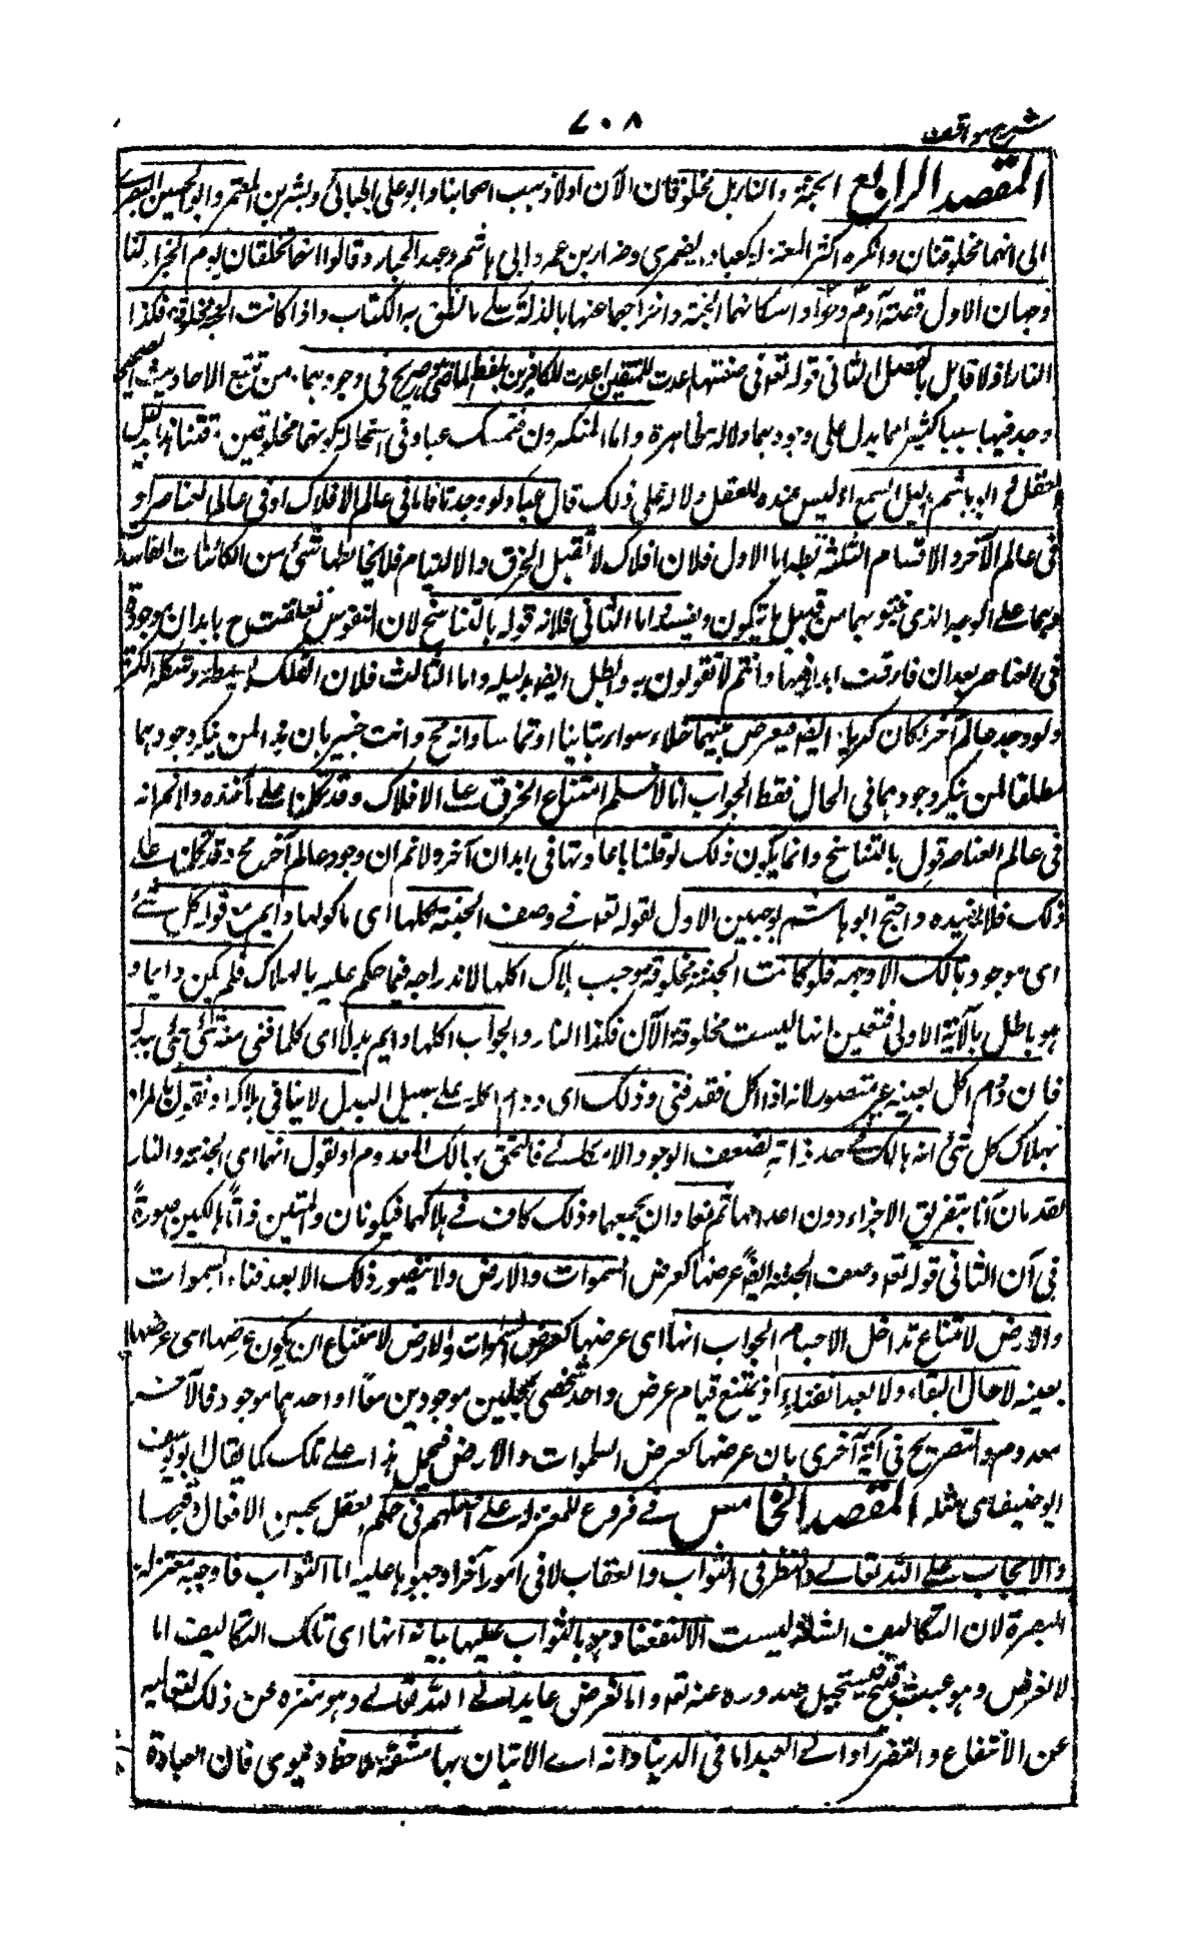 شرح مواقف
٧٠٨
المقصد الرابع الجنة والنار هل مخلوقتان الآن اولا ذهب اصحابنا وابو على الجبائى وبشر بن المعتمر وابو الحسين البصرى
الى انهما مخلوقتان وانكره اكثر المعتزلة كعباد الضمرى وضرار بن عمرو وابى هاشم وعبد الجبار وقالوا انهما تخلقان يوم الجزاء لنا
وجهان الاول قصة آدم وحواء واسكانهما الجنة واخراجهما عنها بالزلة على ما نطق به الكتاب واذا كانت الجنة مخلوقة فكذا
النار اذ لا قائل بالفصل الثانى قوله تعه فى صفتهما اعدت للمتقين اعدت للكافرين بلفظ الماضى وهو صريح فى وجودهما ومن تتبع الاحاديث الصحيحة
وجد فيها شيئا كثيرا مما يدل على وجودهما دلالة ظاهرة واما المنكرون فتمسك عباد فى استحالة كونهما مخلوقتين فى وقتنا هذا بدليل
العقل و ابو هاشم بدليل السمع اذ ليس عنده للعقل دلالة على ذلك قال عباد لو وجدتا فاما فى عالم الافلاك او فى عالم العناصر او
فى عالم آخر والاقسام الثلثة بطه اما الاول فلان افلاك لا تقبل الخرق والالتيام فلا يخالطها شئ من الكائنات الفاسدة
وهما على الوجه الذى تثبتونهما من قبيل ما يتكون ويفسد واما الثانى فلانه قول بالتناسخ لان النفوس تعلقت ح بابدان موجودة
فى العناصر بعد ان فارقت ابدانها وانتم لا تقولون به وابطل ايضا بدليله واما الثالث فلان الفلك بسيطة وشكله الكرة
ولو وجد عالم آخر لكان كريا ايضا فيعرض بينهما خلاء سواء تباينا او تماسا وانه مح وانت خبير بان هذا لمن ينكر وجودهما
مطلقا لمن ينكر وجودهما فى الحال فقط الجواب انا لا نسلم امتناع الخرق على الافلاك وقد تكلمنا على مأخذه ولا نم انه
فى عالم العناصر قول بالتناسخ وانما يكون ذلك لو قلنا باعادتها فى ابدان آخر ولا نم ان وجود عالم آخر مح وقد تكلمنا على
ذلك فلا نعيده واحتج ابو هاشم بوجهين الاول لقوله تعه فى وصف الجنة اكلها اى ماكولها دايم مع قوله كل شئ
اى موجود هالك الا وجهه فلو كانت الجنة مخلوقة وجب هلاك اكلها لاندراجه فيما حكم عليه بالهلاك فلم يكن دايما و
هو باطل بالآية الاولى فتعين انها ليست مخلوقة الآن فكذا النار والجواب اكلها دايم بدلا اى كلما فنى منه شئ جئ ببدله
فان دوام اكل بعينه غير متصور لانه اذا اكل فقد فنى وذلك اى دوام اكله على سبيل البدل لا ينافى هلاكه او نقول المراد
بهلاك كل شئ انه هالك فى حد ذاته لضعف الوجود الامكانى فالتحق بهالك المعدوم او نقول انهما اى الجنة والنار
تعدمان آنا بتفريق الاجزاء دون اعدامها ثم تعادان بجمعها وذلك كاف فى هلاكهما فيكونان دائمتين ذاتا هالكين صورة
فى آن الثانى قوله تعه وصف الجنة ايضا عرضها كعرض السموات والارض ولا يتصور ذلك الا بعد فناء السموات
والارض لامتناع تداخل الاجسام الجواب انها اى عرضها كعرض السموات والارض لامتناع ان يكون عرضها اى عرضهما
بعينه لا حال البقاء ولا بعد الفناء اذ يمتنع قيام عرض واحد شخصى بمحلين موجودين معا او احدهما موجود فالآخر
معدوم والتصريح فى آية آخرى بان عرضها كعرض السموات والارض فيحمل هذا على تلك كما يقال ابو يوسف
ابو حنيفة اى مثله المقصد الخامس فى فروع للمعتزلة على اصلهم فى حكم العقل بحسن الافعال وقبحها
والايجاب على الله تعالى والنظر فى الثواب والعقاب لا فى امور آخر اوجبوها عليه اما الثواب فاوجبه معتزلة
البصرة لان التكاليف الشاقة ليست الا لنفعنا وهو بالثواب عليها بيانه انها اى تلك التكاليف اما
لا لغرض وهو عبث قبيح فيستحيل صدوره عنه تعه واما لغرض عايد الى الله تعالى وهو منزه عن ذلك لتعاليه
عن الانتفاع والتضرر او الى العبد اما فى الدنيا وانه اى الاتيان بها مشقة بلا حظ دنيوى فان العبادة